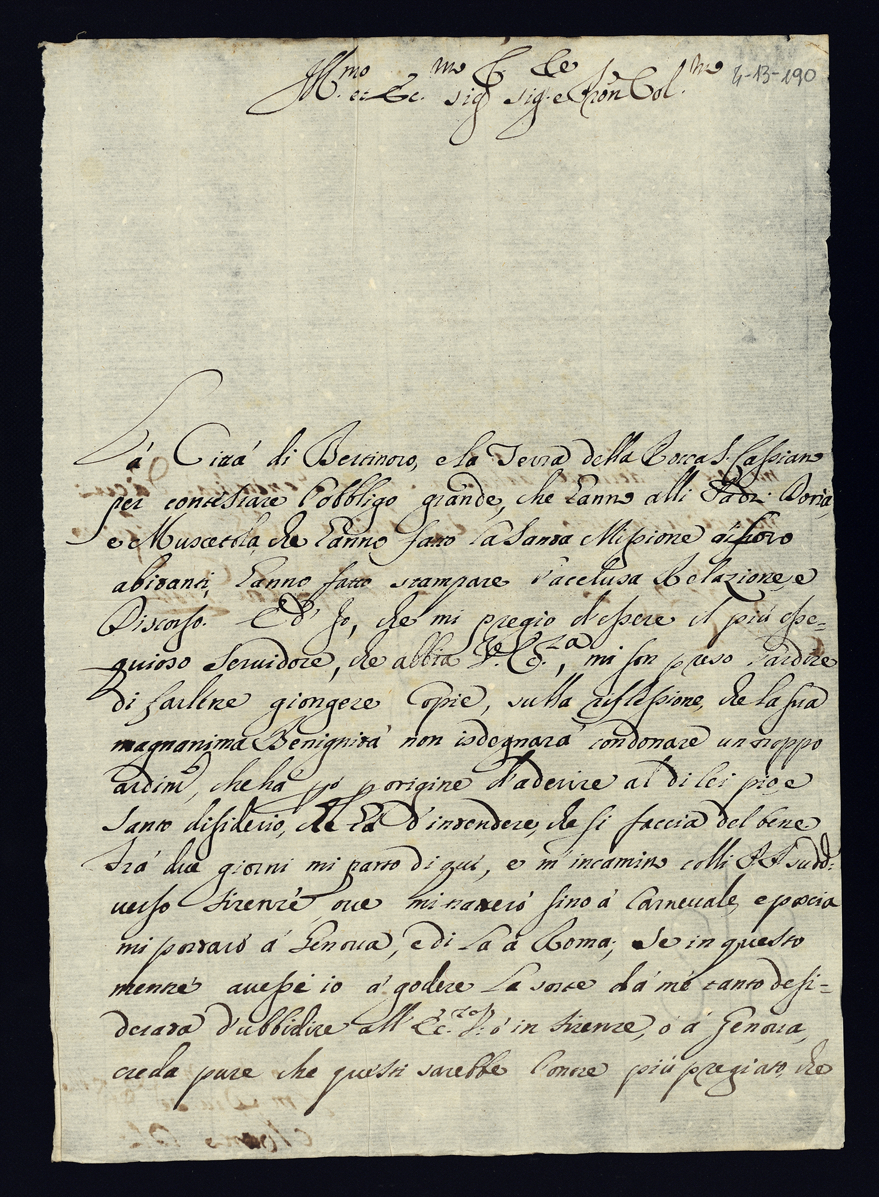 Ill.mo et Ecc.mo Sig.re Sig.re e Pron Col.mo
4-13-190
La Città di Bertinoro, e la Terra della Rocca S. Casciano
per contestare l'obbligo grande, che hanno alli Padri Doria,
e Muscettola che hanno fatto la Santa Missione a' loro
abitanti, hanno fatto stampare l'acclusa Relazione, e
Discorso. Ed Io, che mi pregio d'essere il più osse-
quioso Servidore, che abbia V. Ecc.za, mi son preso l'ardire
di farlene giongere Copie, sulla riflessione, che la sua
magnanima Benignità non isdegnarà condonare un troppo
ardim.to, che ha p. origine d'aderire al di lei pio, e
santo disiderio, che ha d'intendere, che si faccia del bene
Trà due giorni mi parto di qui, e m'incamino colli PP. sudd.i
verso Firenze, ove mi natterò sino à Carnevale, e poscia
mi portarò à Genova, e di là à Roma; Se in questo
mentre avessi io à godere la sorte da mè tanto desi-
derata d'ubbidire all'Ecc.za V. ò in Firenze, ò à Genova,
creda pure che questi sarebbe l'onore più pregiato, che